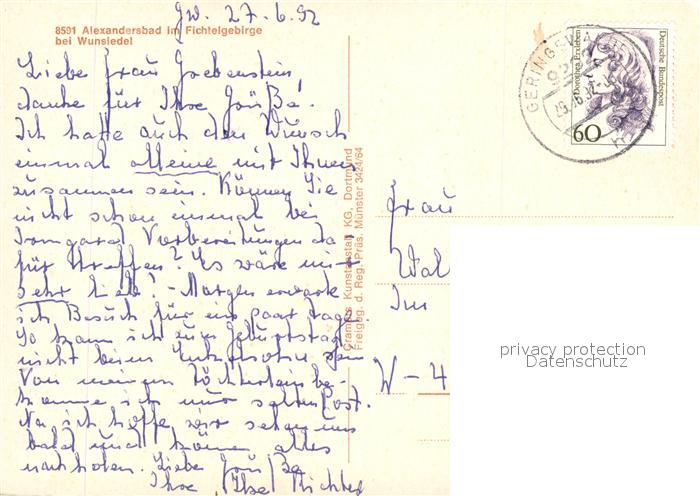 Gw. 27.6.92
8591 Alexandersbad im Fichtelgebirge
bei Wunsiedel
Liebe Frau Grebenstein,
danke für Ihre Grüße!
Ich hatte auch den Wunsch
einmal alleine mit Ihnen
zusammen sein. Können Sie
nicht schon einmal bei
Irmgard Vorbereitungen da
für treffen? Es wäre mir
sehr lieb! - Morgen erwarte
ich Besuch für ein paar Tage.
So kann ich zum Geburtstag
nicht beim
Von meinem Töchterlein be-
komme ich nur selten Post.
Na ich hoffe wir sehen uns
bald und können alles
nachholen. Liebe Grüße
Ihre Ilse Richter
Cramers Kunstanstalt KG, Dortmund
Freigeg. d. Reg. Präs. Münster 3424/64
GERINGSWALDE
Dorothea Erxleben
Deutsche Bundespost
60
Frau
Wal
Im
W-4
privacy protection
Datenschutz